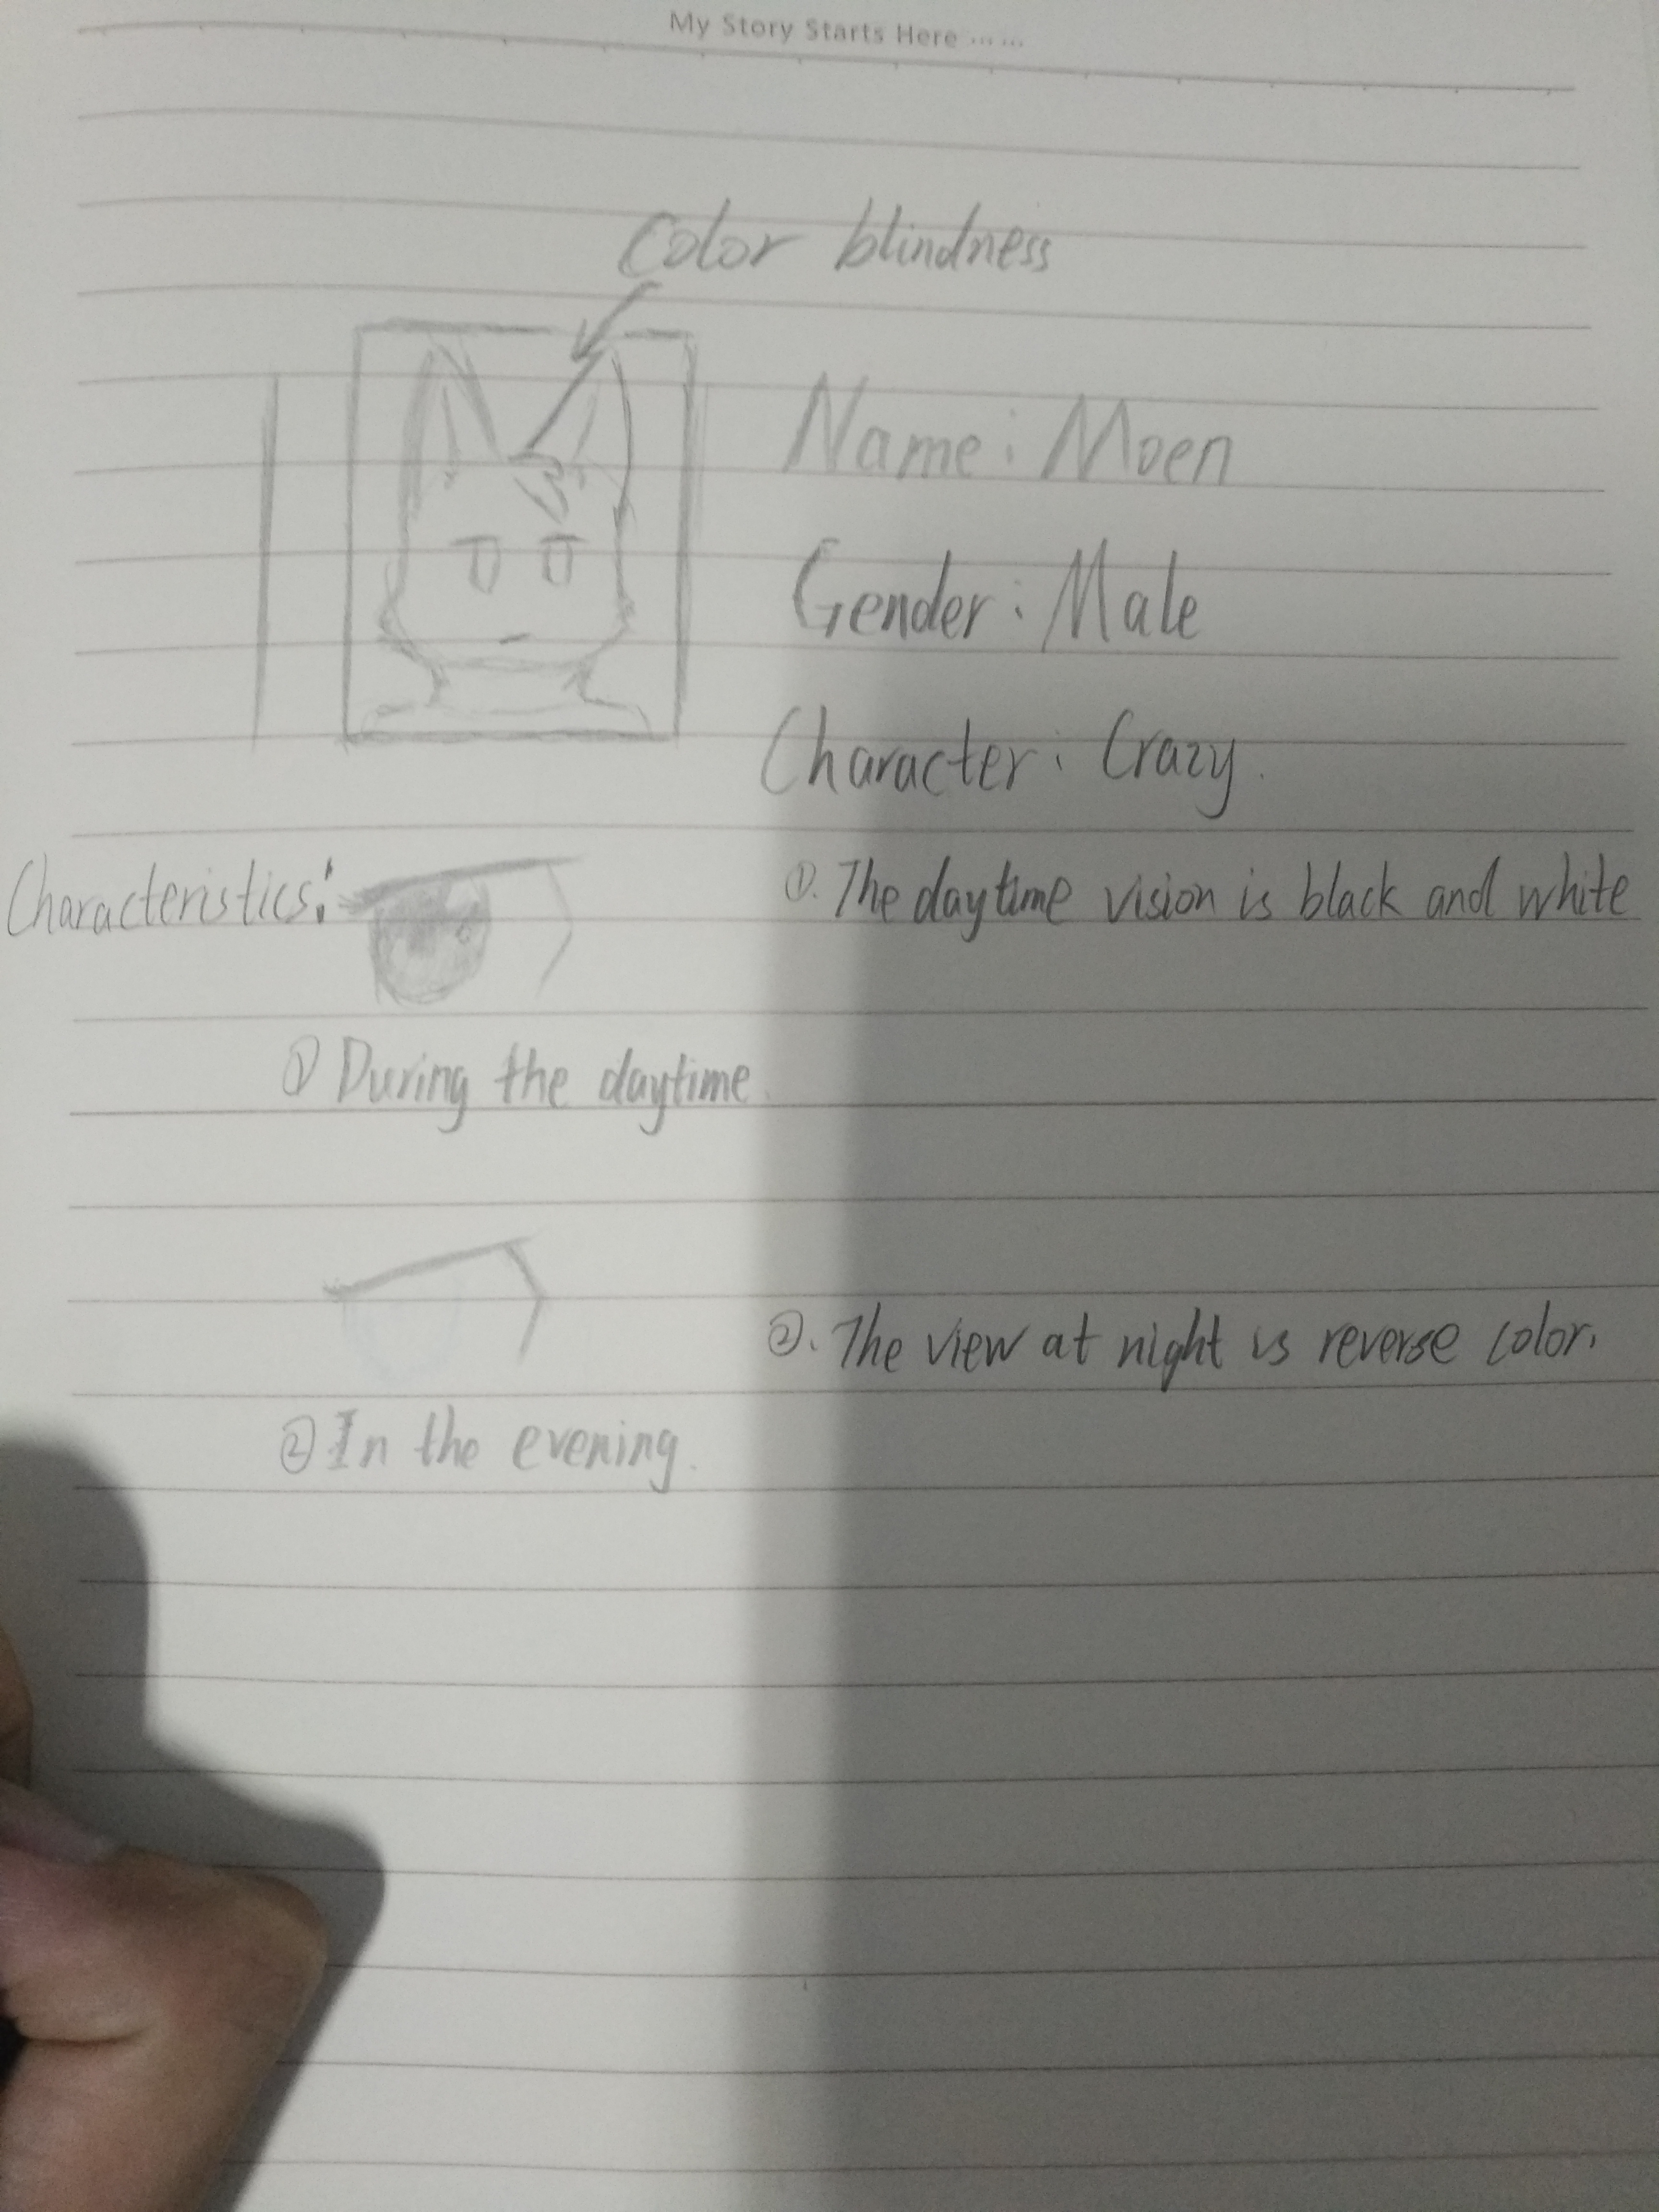 My Story Starts Here ... ...
Color blindness
Name: Moen
Gender: Male
Character: Crazy.
Characteristics:
①. The daytime vision is black and white
① During the daytime.
②. The view at night is reverse color.
② In the evening.